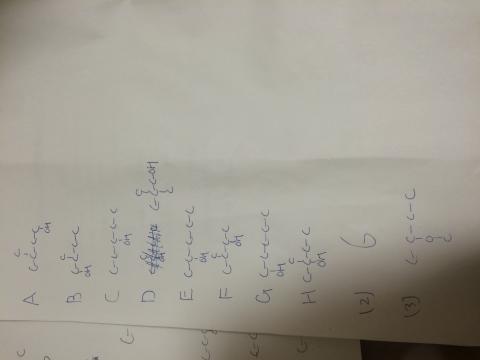 C
A C-C-C-C
OH
C
B C-C-C-C
OH
C C-C-C-C-C
OH
C
D C-C-C-OH
C
E C-C-C-C-C
OH
C
F C-C-C-C
OH
G C-C-C-C-C
OH
C
H C-C-C-C
OH
(2) 6
(3) C-C-C-C
O
C